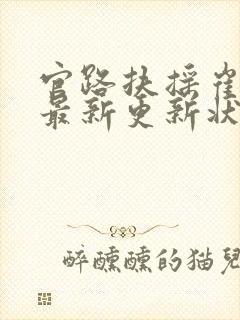 官路扶摇崔
最新更新状
醉醺醺的猫兒